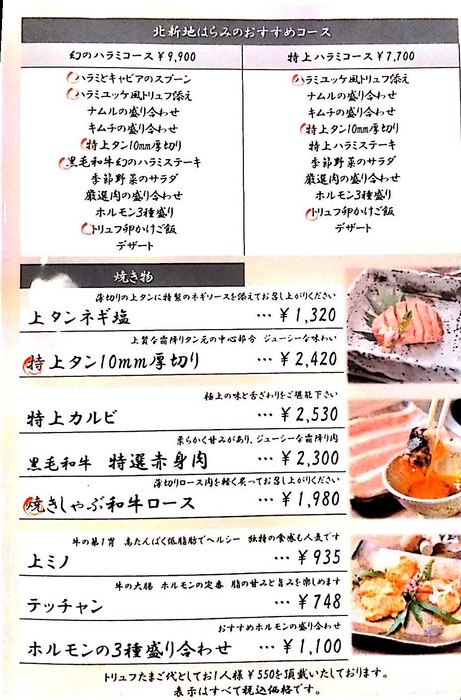 北新地はらみのおすすめコース
幻のハラミコース ¥9,900
ハラミとキャビアのスプーン
ハラミユッケ風トリュフ添え
ナムルの盛り合わせ
キムチの盛り合わせ
特上タン10mm厚切り
黒毛和牛幻のハラミステーキ
季節野菜のサラダ
厳選肉の盛り合わせ
ホルモン3種盛り
トリュフ卵かけご飯
デザート
特上ハラミコース ¥7,700
ハラミユッケ風トリュフ添え
ナムルの盛り合わせ
キムチの盛り合わせ
特上タン10mm厚切り
特上ハラミステーキ
季節野菜のサラダ
厳選肉の盛り合わせ
ホルモン3種盛り
トリュフ卵かけご飯
デザート
焼き物
薄切りの上タンに特製のネギソースを添えてお召し上がりください
上タンネギ塩 … ¥1,320
上質な霜降りタン元の中心部分 ジューシーな味わい
特上タン10mm厚切り … ¥2,420
極上の味と舌ざわりをご堪能下さい
特上カルビ … ¥2,530
柔らかく甘みがあり、ジューシーな霜降り肉
黒毛和牛 特選赤身肉 … ¥2,300
薄切りロース肉を軽く炙ってお召し上がりください
焼きしゃぶ和牛ロース … ¥1,980
牛の第1胃 高たんぱく低脂肪でヘルシー 独特の食感も人気です
上ミノ … ¥935
牛の大腸 ホルモンの定番 脂の甘みと旨みを楽しめます
テッチャン … ¥748
おすすめホルモンの盛り合わせ
ホルモンの3種盛り合わせ … ¥1,100
トリュフたまご代としてお1人様¥550を頂戴いたしております。
表示はすべて税込価格です。